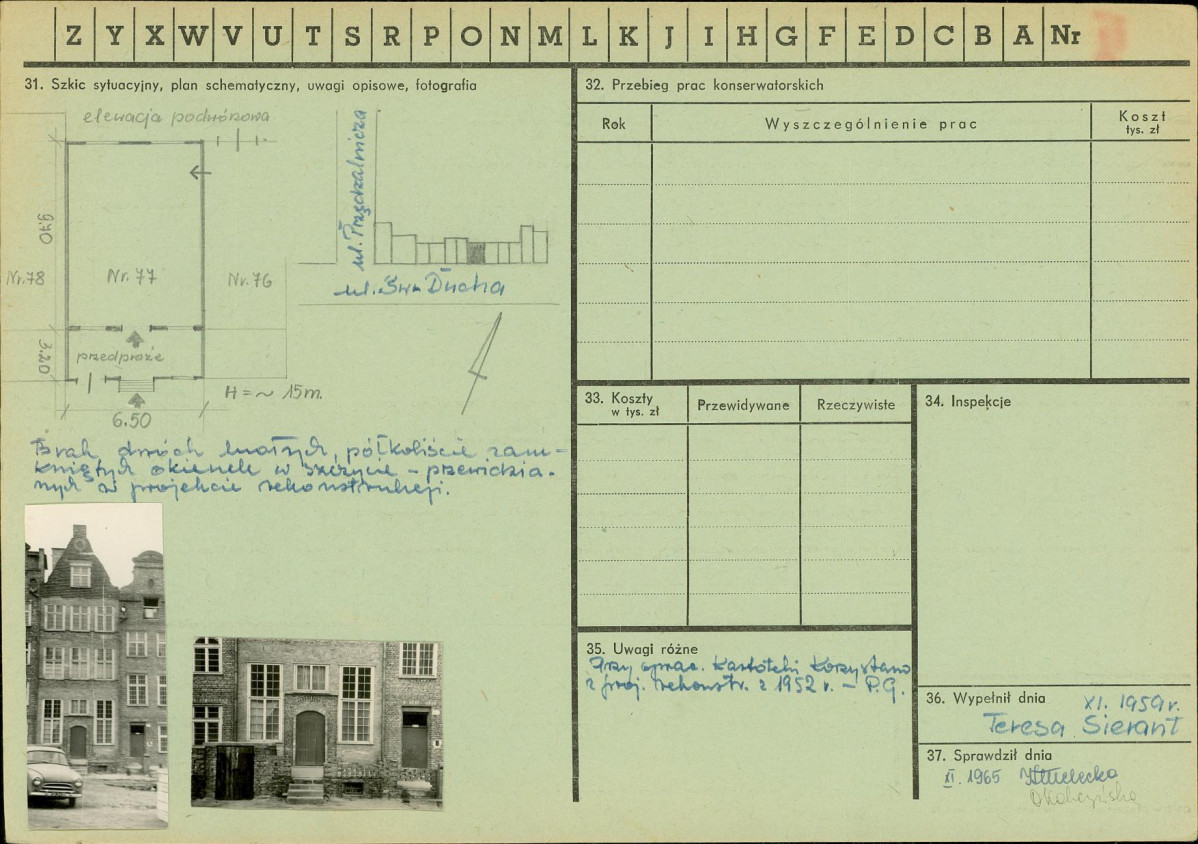 Z Y X W V U T S R P O N M L K J I H G F E D C B A Nr
31. Szkic sytuacyjny, plan schematyczny, uwagi opisowe, fotografia
elewacja podwórzowa
9.70
Nr.78
Nr. 77
Nr. 76
3.20
przedproże
H = ~ 15m.
6.50
ul. Przędzalnicza
ul. Św. Ducha
Brak dwóch małych, półkoliście zam-
kniętych okienek w szczycie – przewidzia-
nych w projekcie rekonstrukcji.
32. Przebieg prac konserwatorskich
Rok
Wyszczególnienie prac
Koszt
tys. zł
33. Koszty
w tys. zł
Przewidywane
Rzeczywiste
34. Inspekcje
35. Uwagi różne
Przy oprac. kartoteki korzystano
z proj. rekonstr. z 1952 r. – P.G.
36. Wypełnił dnia
XI. 1959 r.
Teresa Sierant
37. Sprawdził dnia
II. 1965